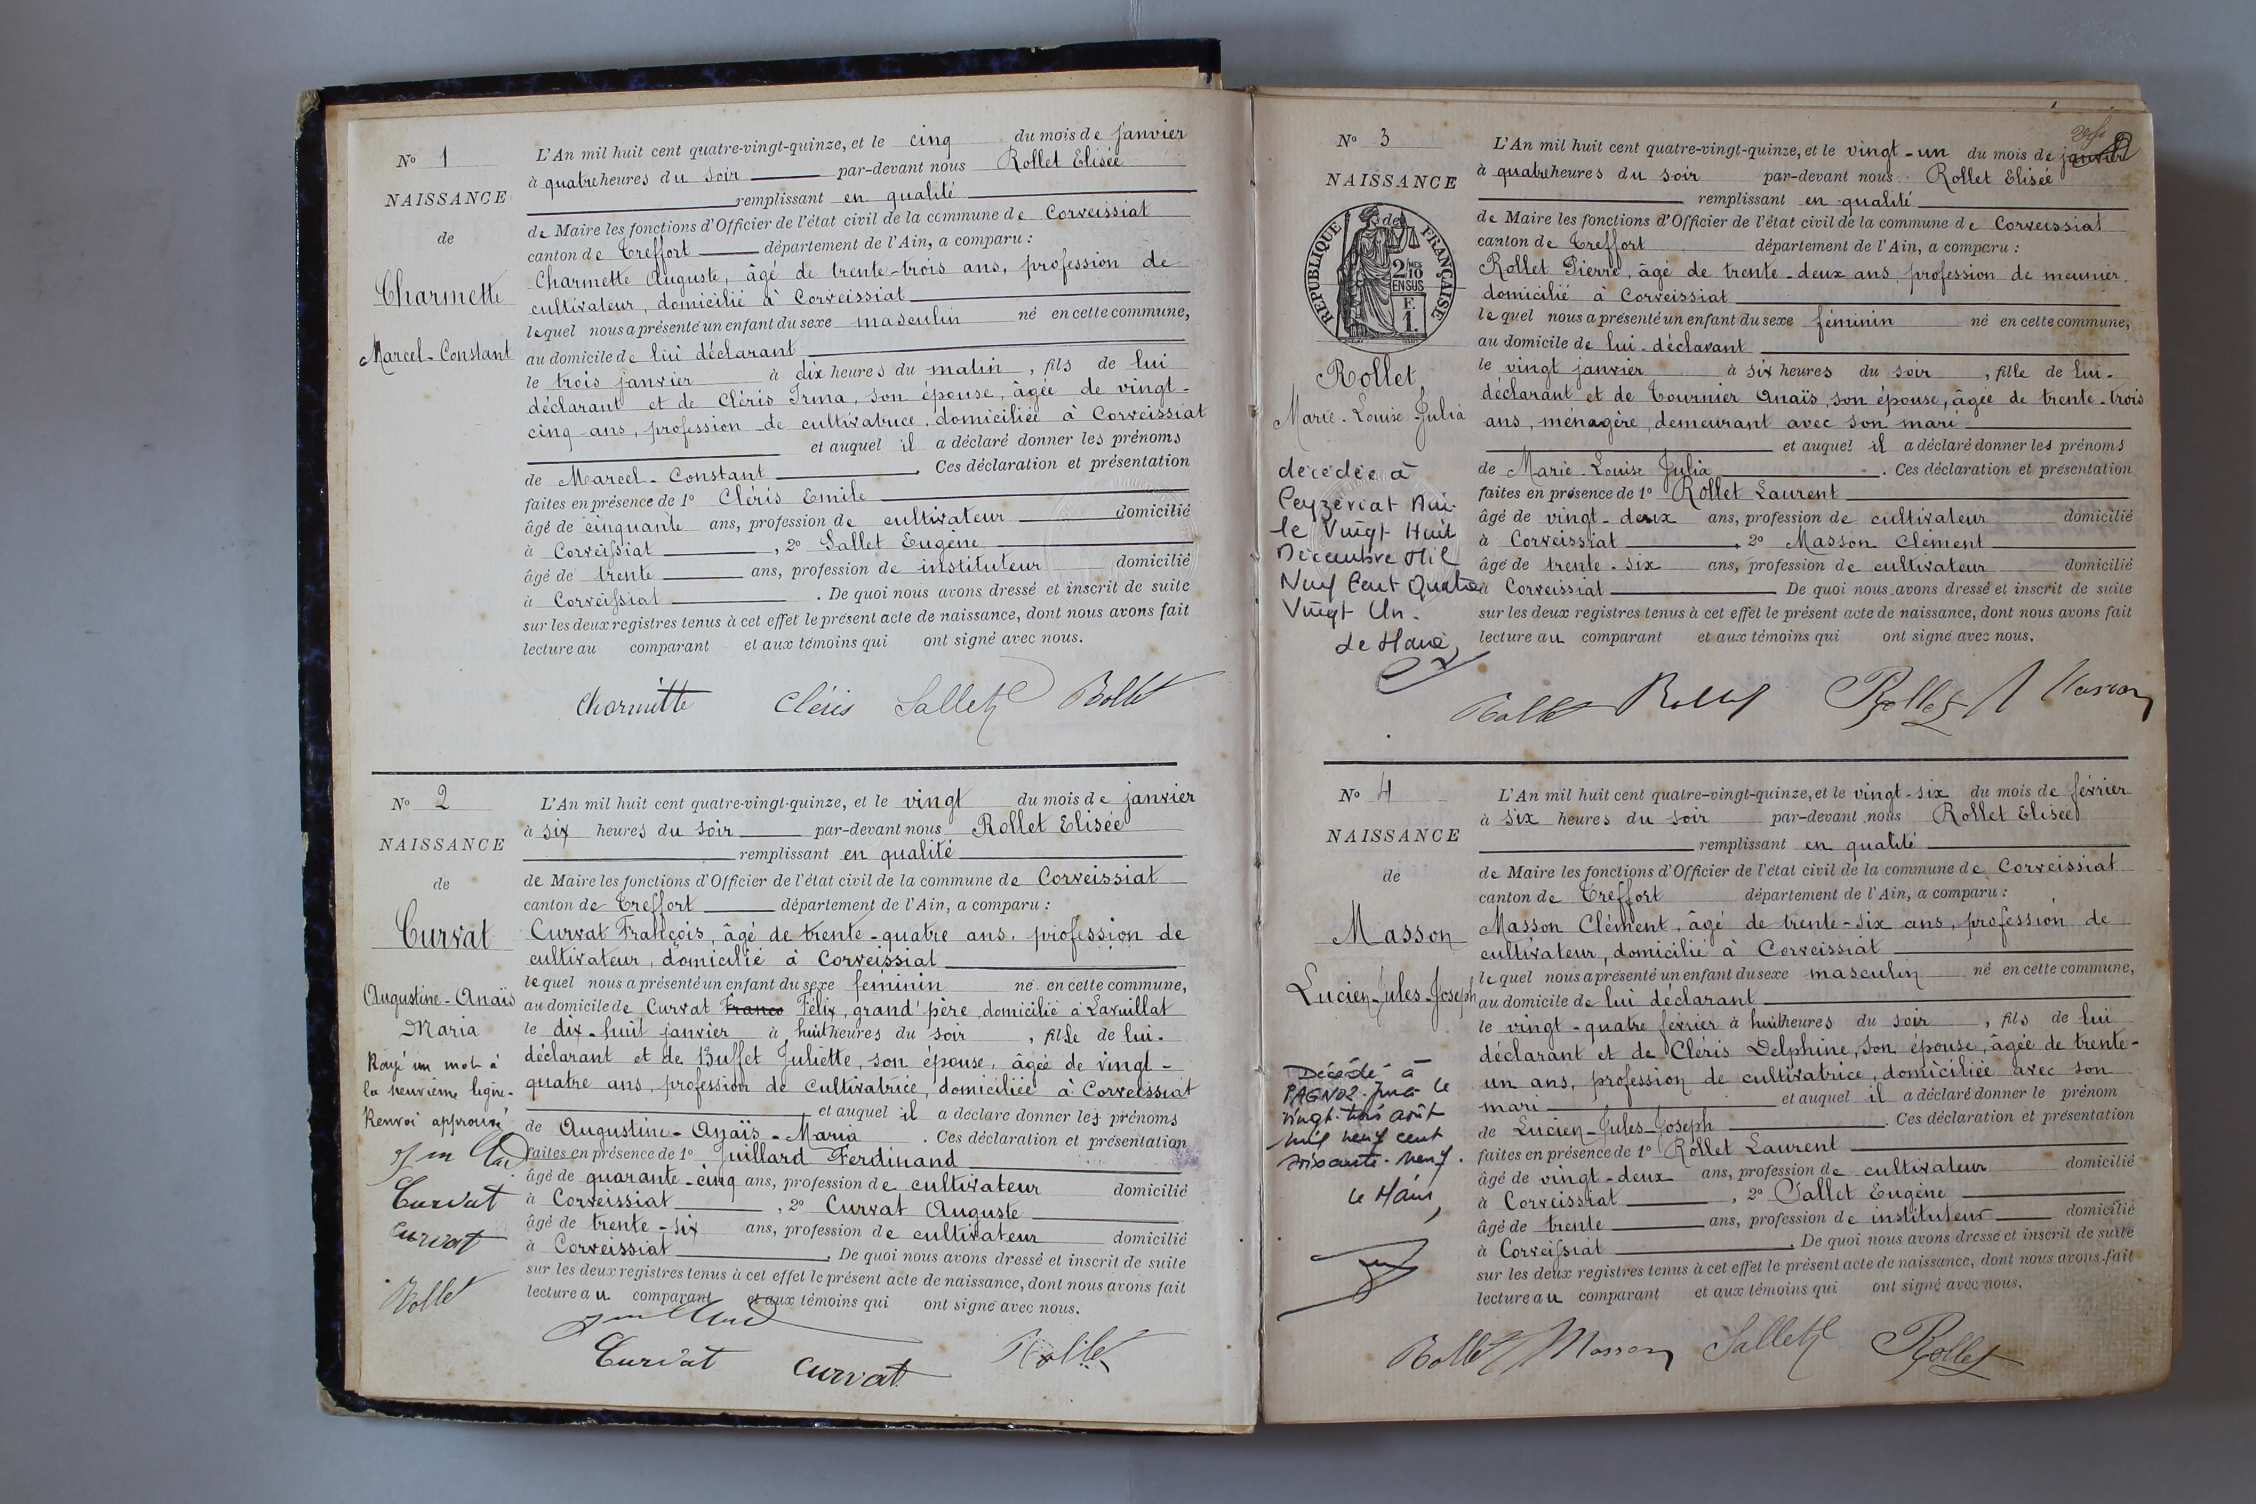 N° 1
NAISSANCE
de
Charmette
Marcel-Constant
L'An mil huit cent quatre-vingt-quinze, et le cinq du mois de janvier
à quatre heures du soir par-devant nous Rollet Elisée
remplissant en qualité
de Maire les fonctions d'Officier de l'état civil de la commune de Corveissiat
canton de Treffort département de l'Ain, a comparu :
Charmette Auguste, âgé de trente-trois ans, profession de
cultivateur, domicilié à Corveissiat
lequel nous a présenté un enfant du sexe masculin né en cette commune,
au domicile de lui déclarant
le trois janvier à dix heures du matin, fils de lui
déclarant et de Cléris Irma, son épouse, âgée de vingt-
cinq ans, profession de cultivatrice, domiciliée à Corveissiat
et auquel il a déclaré donner les prénoms
de Marcel-Constant. Ces déclaration et présentation
faites en présence de 1° Cléris Emile
âgé de cinquante ans, profession de cultivateur domicilié
à Corveissiat, 2° Sallet Eugène
âgé de trente ans, profession de instituteur domicilié
à Corveissiat. De quoi nous avons dressé et inscrit de suite
sur les deux registres tenus à cet effet le présent acte de naissance, dont nous avons fait
lecture au comparant et aux témoins qui ont signé avec nous.
Charmette Cléris Sallet Rollet
N° 2
NAISSANCE
de
Curvat
Augustine-Anaïs
Maria
Rayé un mot à
la neuvième ligne.
Renvoi approuvé
Curvat
Curvat
Rollet
L'An mil huit cent quatre-vingt-quinze, et le vingt du mois de janvier
à six heures du soir par-devant nous Rollet Elisée
remplissant en qualité
de Maire les fonctions d'Officier de l'état civil de la commune de Corveissiat
canton de Treffort département de l'Ain, a comparu :
Curvat François, âgé de trente-quatre ans, profession de
cultivateur, domicilié à Corveissiat
lequel nous a présenté un enfant du sexe féminin né en cette commune,
au domicile de Curvat Franco Félix, grand'père, domicilié à Lavuillat
le dix-huit janvier à huit heures du soir, fille de lui-
déclarant et de Buffet Juliette, son épouse, âgée de vingt-
quatre ans, profession de cultivatrice, domiciliée à Corveissiat
et auquel il a déclaré donner les prénoms
de Augustine-Anaïs-Maria. Ces déclaration et présentation
faites en présence de 1° Juillard Ferdinand
âgé de quarante-cinq ans, profession de cultivateur domicilié
à Corveissiat, 2° Curvat Auguste
âgé de trente-six ans, profession de cultivateur domicilié
à Corveissiat. De quoi nous avons dressé et inscrit de suite
sur les deux registres tenus à cet effet le présent acte de naissance, dont nous avons fait
lecture au comparant et aux témoins qui ont signé avec nous.
Juillard
Curvat Curvat Rollet
N° 3
NAISSANCE
de
REPUBLIQUE FRANÇAISE
2/10 MES
EN SUS
F.
1.
Rollet
Marie-Louise-Julia
décédée à
Ceyzériat Ain
le Vingt Huit
Décembre Mil
Neuf Cent Quatre
Vingt Un.
Le Maire,
L'An mil huit cent quatre-vingt-quinze, et le vingt-un du mois de janvier
à quatre heures du soir par-devant nous Rollet Elisée
remplissant en qualité
de Maire les fonctions d'Officier de l'état civil de la commune de Corveissiat
canton de Treffort département de l'Ain, a comparu :
Rollet Pierre, âgé de trente-deux ans, profession de meunier,
domicilié à Corveissiat
lequel nous a présenté un enfant du sexe féminin né en cette commune,
au domicile de lui-déclarant
le vingt janvier à six heures du soir, fille de lui-
déclarant et de Tournier Anaïs, son épouse, âgée de trente-trois
ans, ménagère, demeurant avec son mari
et auquel il a déclaré donner les prénoms
de Marie-Louise Julia. Ces déclaration et présentation
faites en présence de 1° Rollet Laurent
âgé de vingt-deux ans, profession de cultivateur domicilié
à Corveissiat, 2° Masson Clément
âgé de trente-six ans, profession de cultivateur domicilié
à Corveissiat De quoi nous avons dressé et inscrit de suite
sur les deux registres tenus à cet effet le présent acte de naissance, dont nous avons fait
lecture au comparant et aux témoins qui ont signé avec nous.
Rollet Rollet Rollet Masson
N° 4
NAISSANCE
de
Masson
Lucien-Jules-Joseph
Décédé à
PAGNOZ-Jura le
vingt-trois août
mil neuf cent
soixante-neuf.
Le Maire,
L'An mil huit cent quatre-vingt-quinze, et le vingt-six du mois de février
à six heures du soir par-devant nous Rollet Elisée
remplissant en qualité
de Maire les fonctions d'Officier de l'état civil de la commune de Corveissiat
canton de Treffort département de l'Ain, a comparu :
Masson Clément, âgé de trente-six ans, profession de
cultivateur, domicilié à Corveissiat
lequel nous a présenté un enfant du sexe masculin né en cette commune,
au domicile de lui déclarant
le vingt-quatre février à huit heures du soir, fils de lui
déclarant et de Cléris Delphine, son épouse, âgée de trente-
un ans, profession de cultivatrice, domiciliée avec son
mari et auquel il a déclaré donner le prénom
de Lucien-Jules-Joseph. Ces déclaration et présentation
faites en présence de 1° Rollet Laurent
âgé de vingt-deux ans, profession de cultivateur domicilié
à Corveissiat, 2° Sallet Eugène
âgé de trente ans, profession de instituteur domicilié
à Corveissiat. De quoi nous avons dressé et inscrit de suite
sur les deux registres tenus à cet effet le présent acte de naissance, dont nous avons fait
lecture au comparant et aux témoins qui ont signé avec nous.
Rollet Masson Sallet Rollet